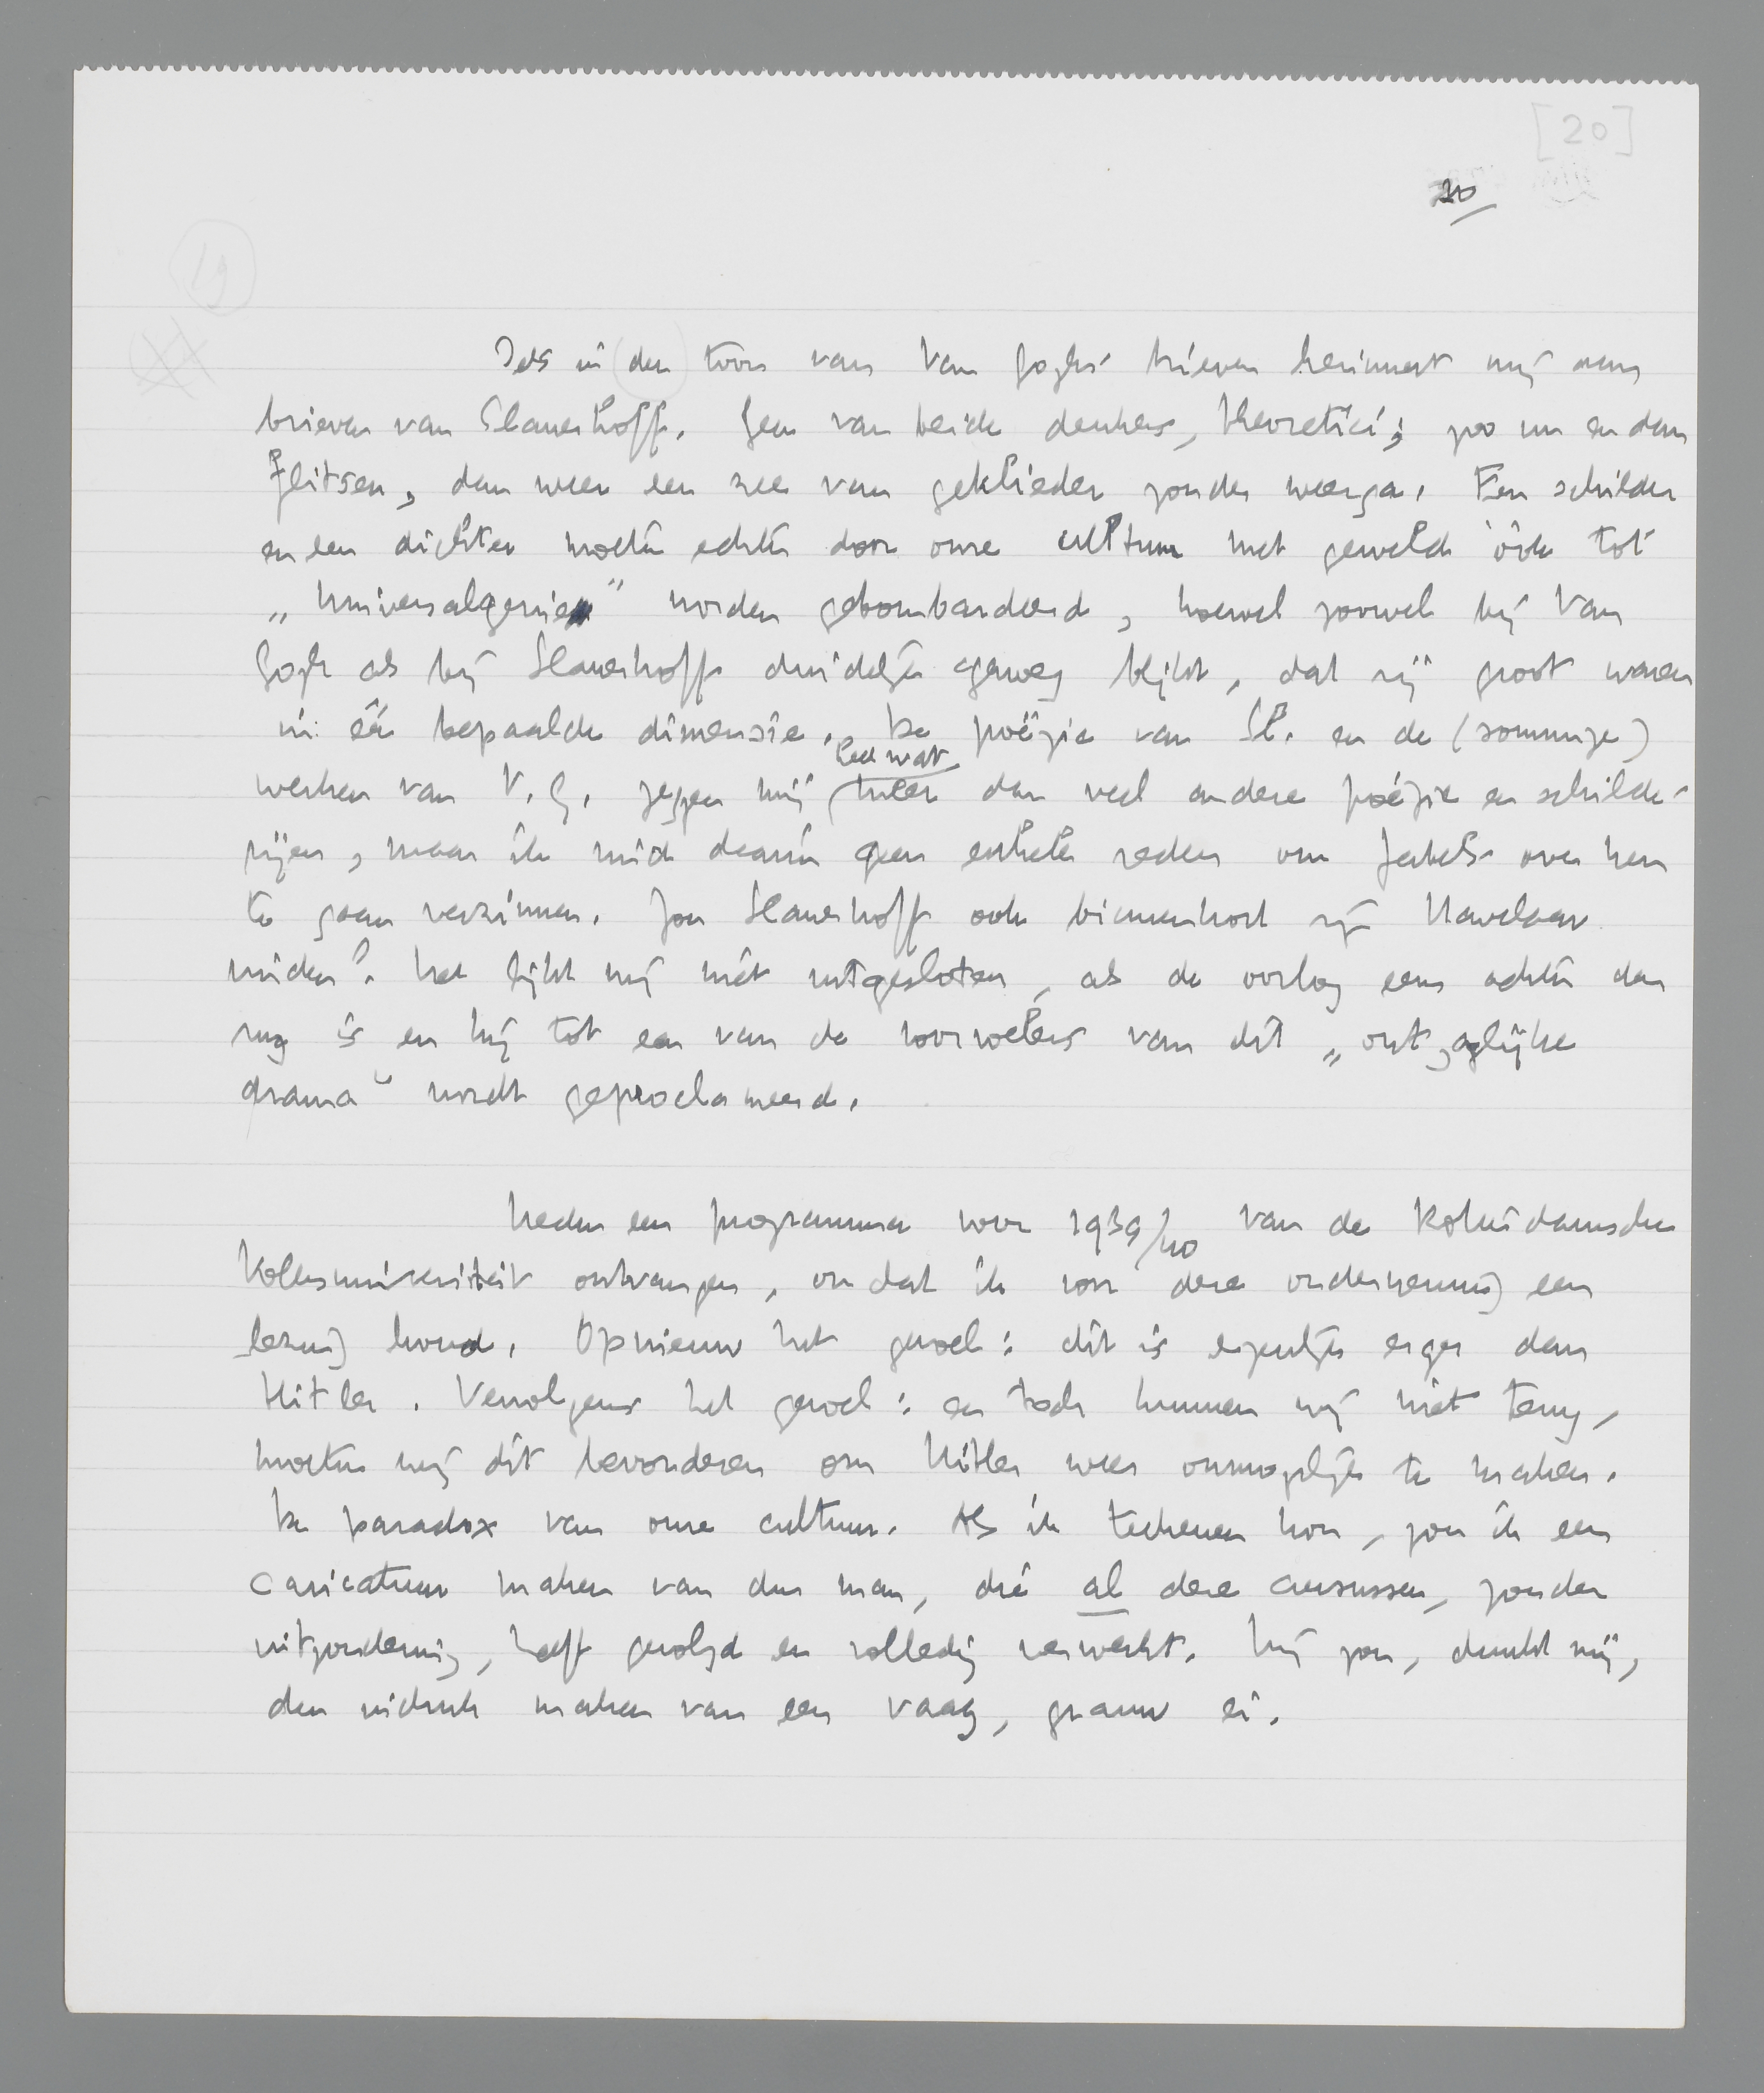 [20]
20
19
Iets in den toon van Van Goghs brieven herinnert mij aan
brieven van Slauerhoff. Geen van beide denkers, theoretici; zoo nu en dan
flitsen, dan weer een zee van geklieder zonder weerga. Een schilder
en een dichter moeten echter door onze cultuur met geweld óók tot
„Universalgenie" worden gebombardeerd, hoewel zoowel bij Van
Gogh als bij Slauerhoff duidelijk genoeg blijkt, dat zij groot waren
in één bepaalde dimensie. De poëzie van Sl. en de (sommige)
heel wat
werken van V. G. zeggen mij meer dan veel andere poëzie en schilde-
rijen, maar ik vind daarin geen enkele reden om fabels over hen
te gaan verzinnen. Zou Slauerhoff ook binnenkort zijn Havelaar
vinden? Het lijkt mij niet uitgesloten, als de oorlog eens achter den
rug is en hij tot een van de voorvoelers van dit „ontzaglijke
drama" wordt geproclameerd.
Heden een programma voor 1939/40 van de Rotterdamsche
Volksuniversiteit ontvangen, omdat ik voor deze onderneming een
lezing houd. Opnieuw het gevoel: dit is eigenlijk erger dan
Hitler. Vervolgens het gevoel: en toch kunnen wij niet terug,
moeten wij dit bevorderen om Hitler weer onmogelijk te maken.
De paradox van onze cultuur. Als ik teekenen kon, zou ik een
caricatuur maken van den man, die al deze cursussen, zonder
uitzondering, heeft gevolgd en volledig verwerkt. Hij zou, dunkt mij,
den indruk maken van een vaag, grauw ei.